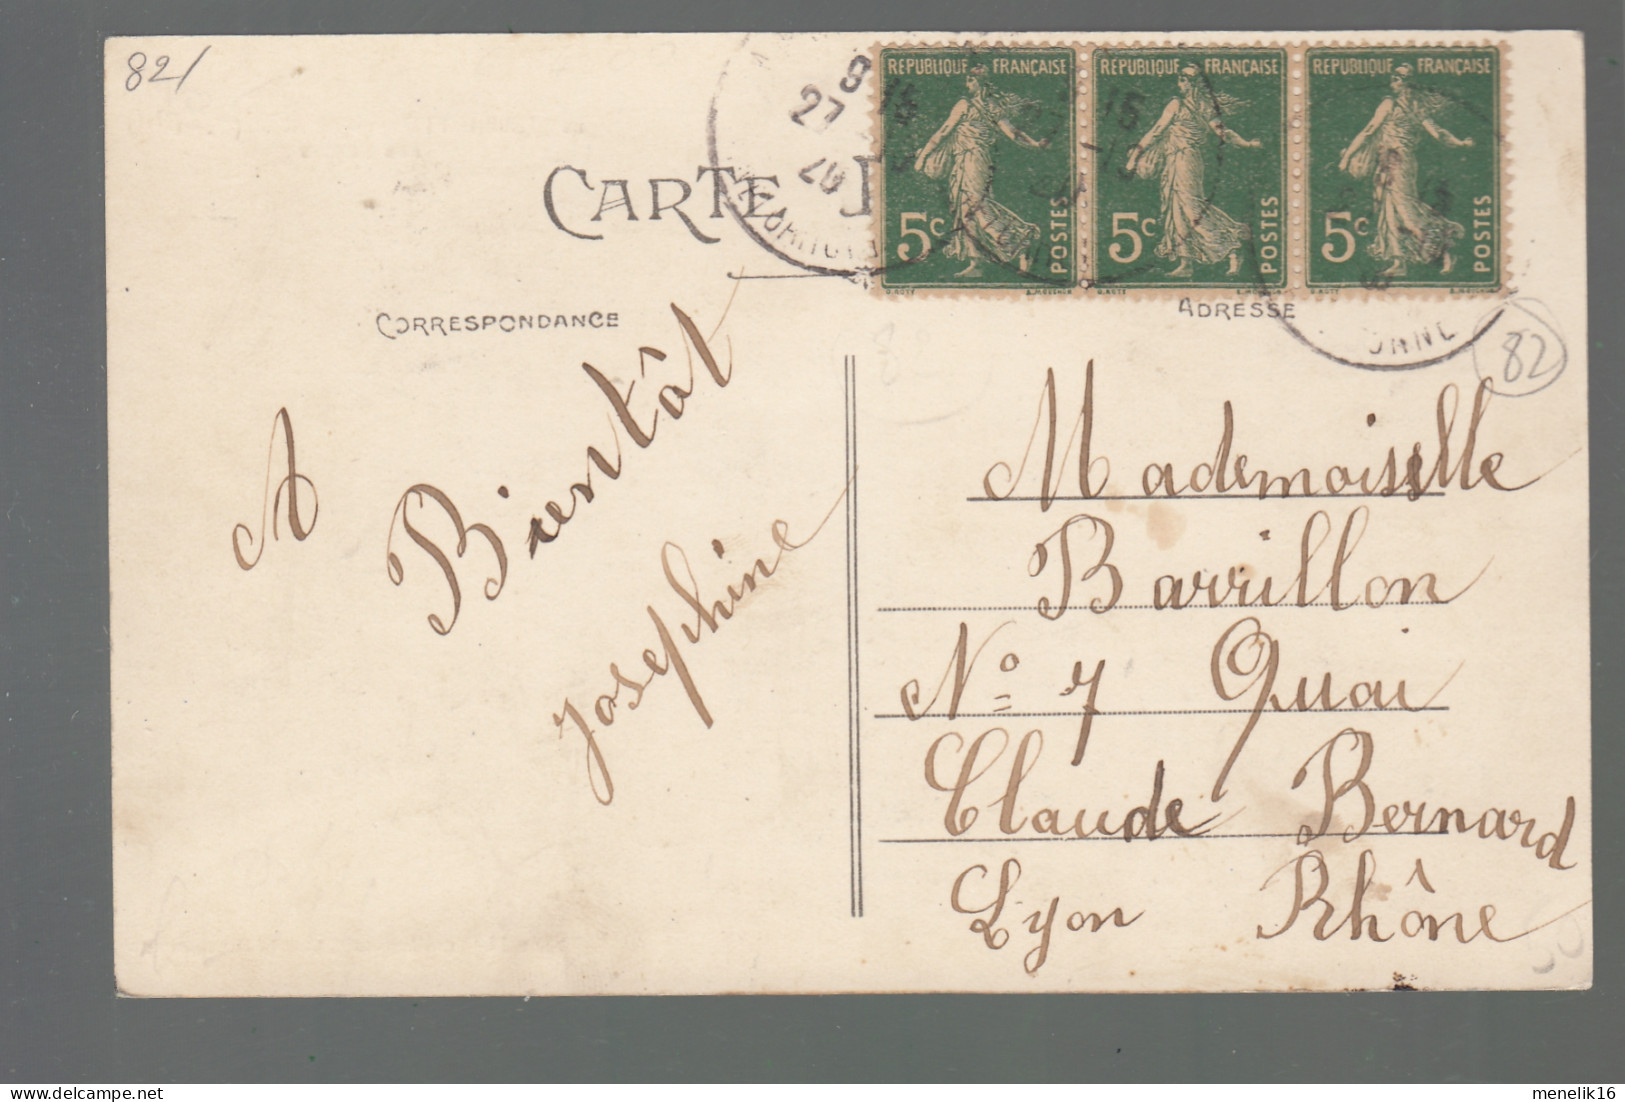 82/
CARTE
RÉPUBLIQUE FRANÇAISE
5c
POSTES
RÉPUBLIQUE FRANÇAISE
5c
POSTES
RÉPUBLIQUE FRANÇAISE
5c
POSTES
CORRESPONDANCE
ADRESSE
82
A
Bientôt
Josephine
Mademoiselle
Barrillon
N° 7 Quai
Claude Bernard
Lyon Rhône
delcampe.net
menelik16